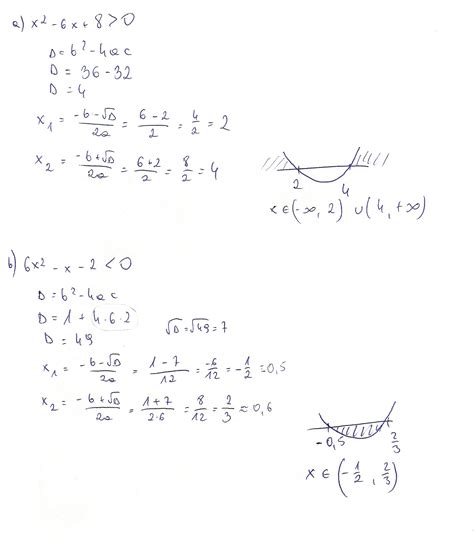 a) x² - 6x + 8 > 0
D = b² - 4ac
D = 36 - 32
D = 4
x₁ = (-b - √D)/2a = (6 - 2)/2 = 4/2 = 2
x₂ = (-b + √D)/2a = (6 + 2)/2 = 8/2 = 4
2 4
x ∈ (-∞, 2) ∪ (4, +∞)
b) 6x² - x - 2 < 0
D = b² - 4ac
D = 1 + 4·6·2
√D = √49 = 7
D = 49
x₁ = (-b - √D)/2a = (1 - 7)/12 = -6/12 = -1/2 = 0,5
x₂ = (-b + √D)/2a = (1 + 7)/2·6 = 8/12 = 2/3 ≈ 0,6
-0,5 2/3
x ∈ (-1/2, 2/3)